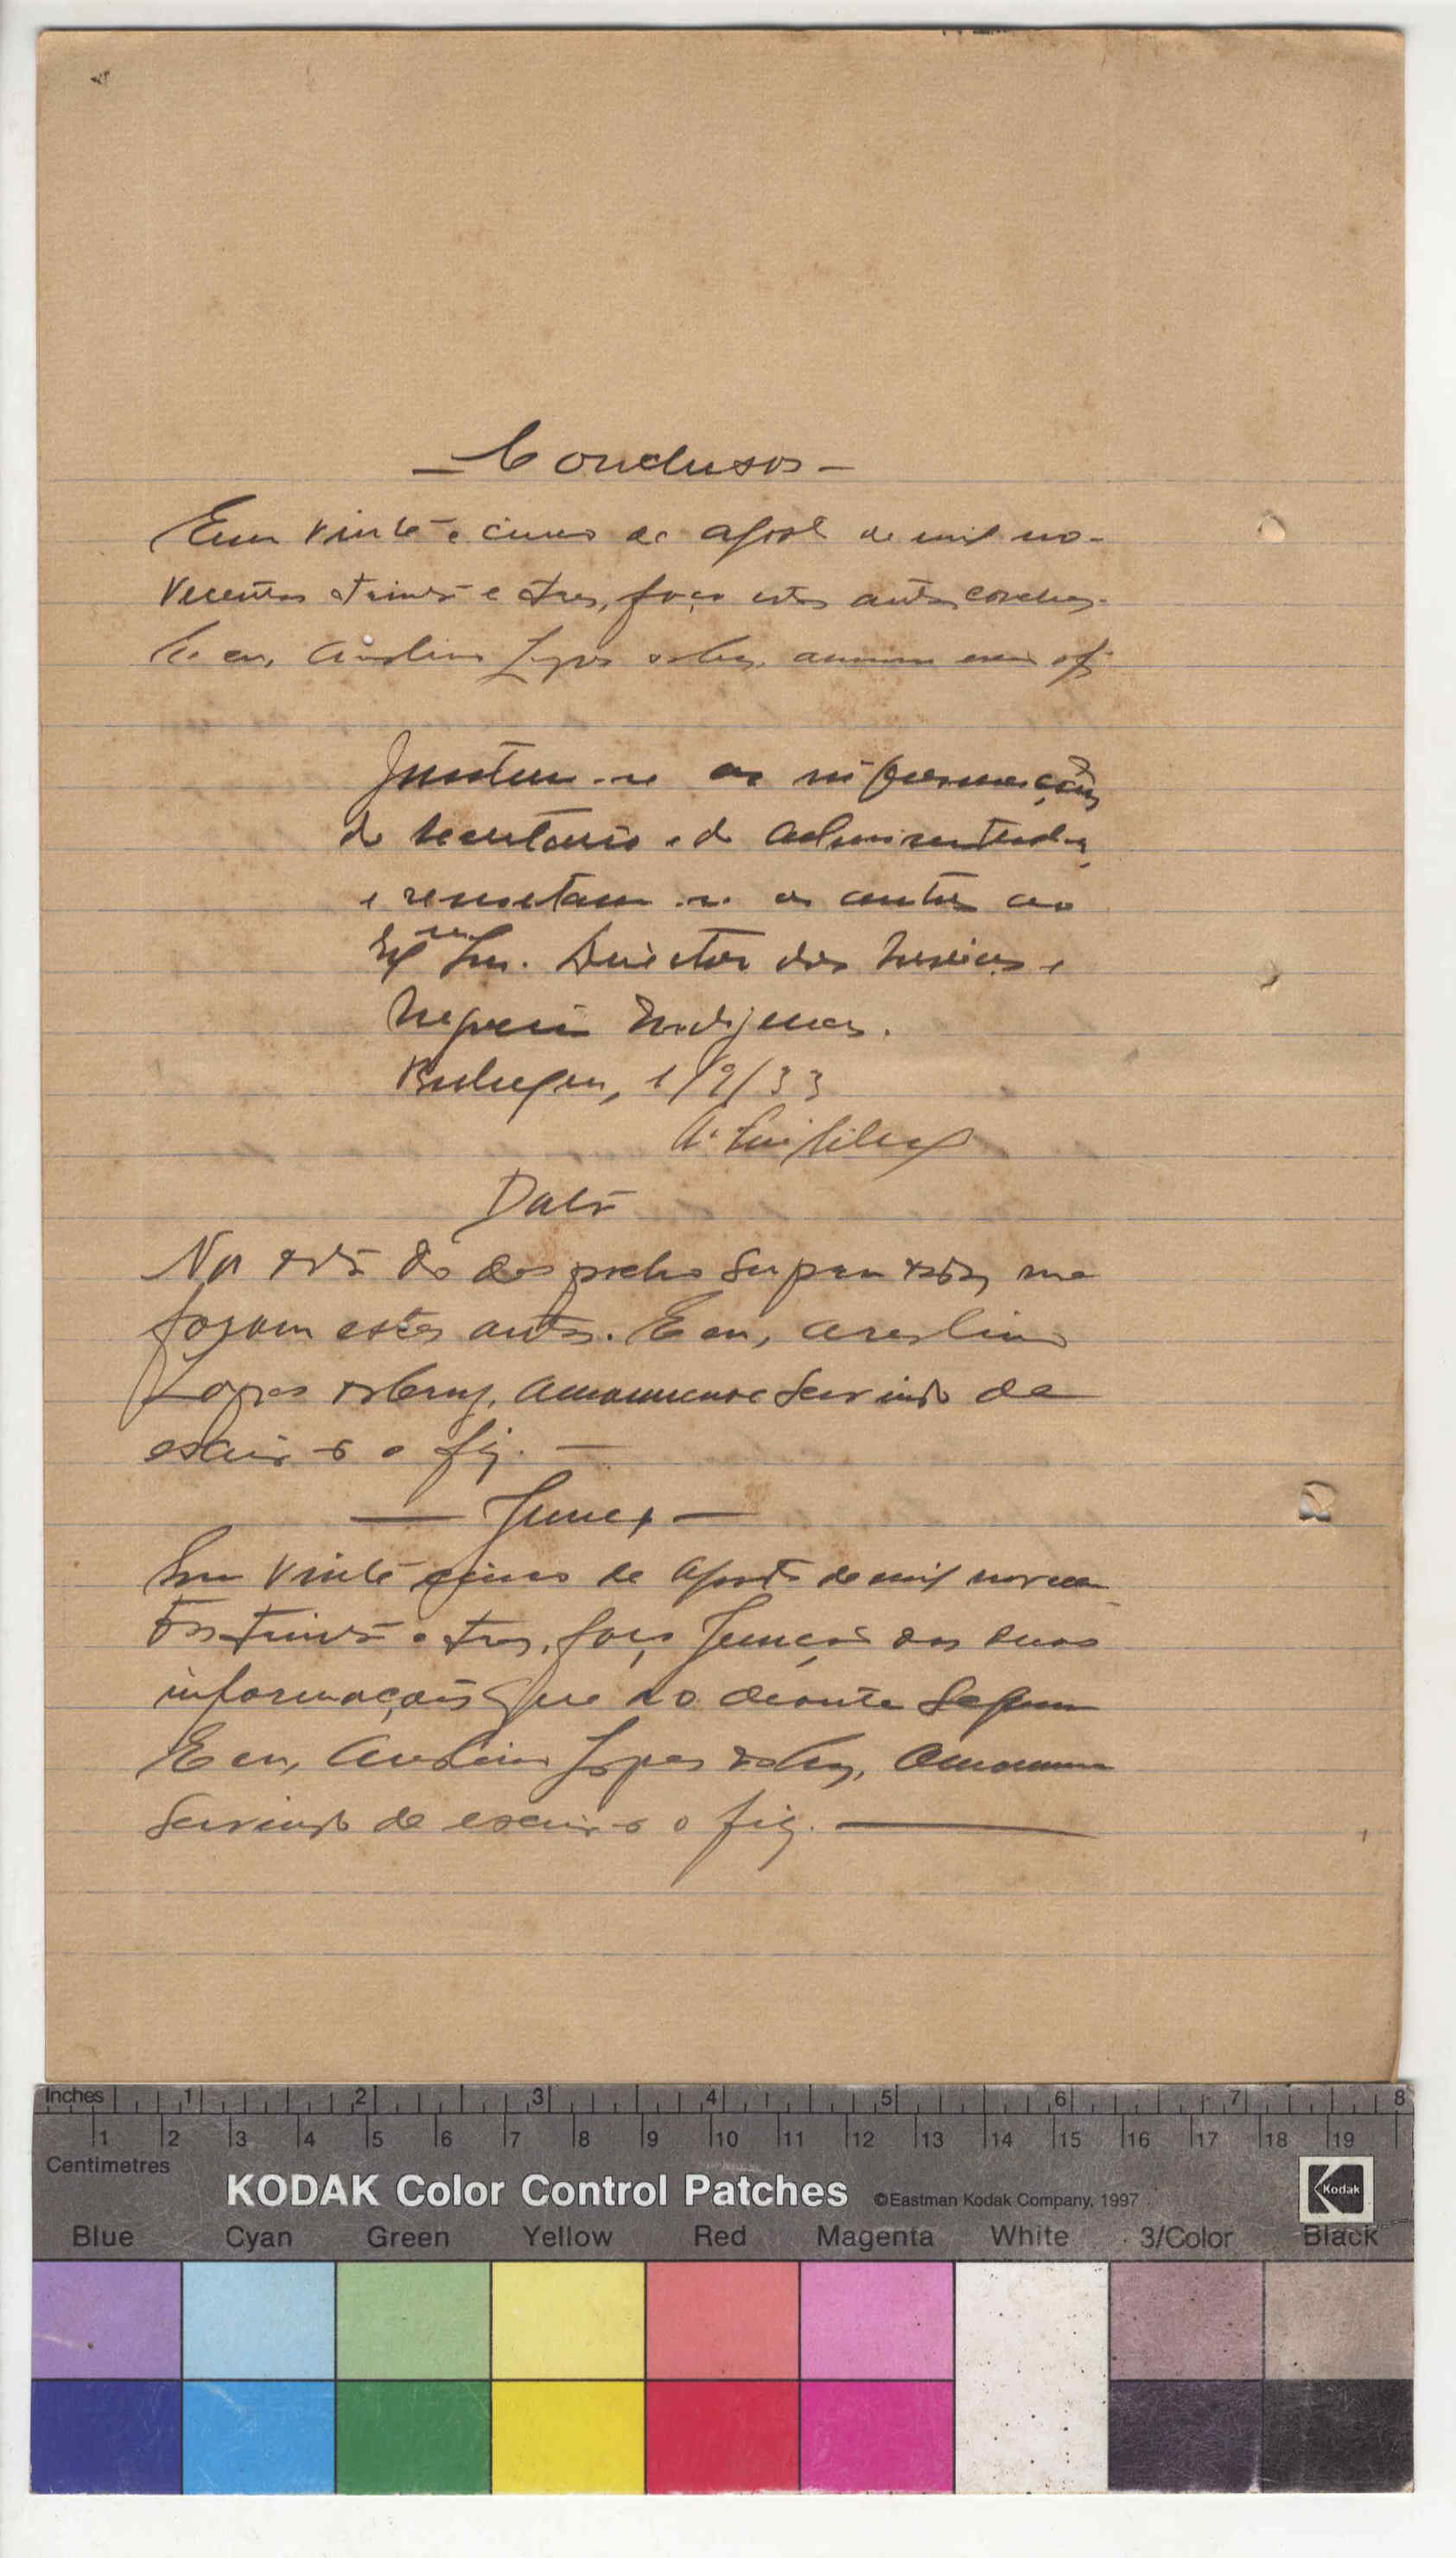 — Conclusos —
Em vinte e cinco de agosto de mil no-
vecentos e trinta e tres, faço estes autos conclusos.
E eu, Lopes
Juntem-se as informações
do Secretario e do Administrador,
e remetam-se os autos ao
Exmo Snr. Director dos Serviços e
Negocios Indigenas.
1/9/33
Data
Na data do despacho supra me
foram estes autos. E eu,
Lopes amanuense servindo de
escrivão o fiz. —
— Junção —
Em vinte cinco de agosto de mil novecen-
tos trinta e tres, faço junção das duas
informações que ao deante seguem
E eu, Lopes amanuense
servindo de escrivão o fiz.
Inches 1 2 3 4 5 6 7 8
1 2 3 4 5 6 7 8 9 10 11 12 13 14 15 16 17 18 19
Centimetres
KODAK Color Control Patches ©Eastman Kodak Company, 1997 Kodak
Blue Cyan Green Yellow Red Magenta White 3/Color Black